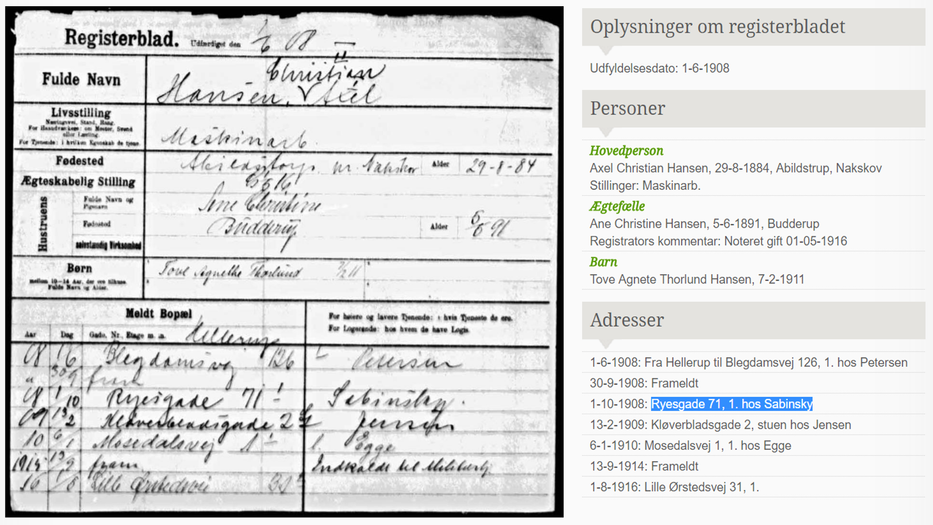 Registerblad. Udfærdiget den 1/6 08
Christian
Fulde Navn
Hansen, Axel
Livsstilling
Næringsvej, Stand, Rang.
eller Lærling.
Maskinarb.
Fødested
nr. Nakskov
Alder 29-8-84
Ægteskabelig Stilling
Hustruens
Fulde Navn og
Pigenavn
Ane Christine
Fødested
Budderup
Alder 5/6 91
selvstændig Virksomhed
Børn
Fulde Navn og Alder.
Tove Agnethe Thorlund 7/2 11
Meldt Bopæl
For højere og lavere Tjenende: i hvis Tjeneste de ere.
For Logerende: hos hvem de have Logis.
Aar Dag Gade, Nr. Etage m. m. Hellerup
08 1/6 Blegdamsvej 126 1 Petersen
" 30/9 fram
08 1/10 Ryesgade 71 1 Sabinsky.
09 13/2 Kløverbladsgade 2 St Jensen
10 6/1 Mosedalsvej 1 1 Egge
1914 13/9 fram Indkaldt til Militærtj
16 1/8 Lille Ørstedsvej 31
Oplysninger om registerbladet
Udfyldelsesdato: 1-6-1908
Personer
Hovedperson
Axel Christian Hansen, 29-8-1884, Abildstrup, Nakskov
Stillinger: Maskinarb.
Ægtefælle
Ane Christine Hansen, 5-6-1891, Budderup
Registrators kommentar: Noteret gift 01-05-1916
Barn
Tove Agnete Thorlund Hansen, 7-2-1911
Adresser
1-6-1908: Fra Hellerup til Blegdamsvej 126, 1. hos Petersen
30-9-1908: Frameldt
1-10-1908: Ryesgade 71, 1. hos Sabinsky
13-2-1909: Kløverbladsgade 2, stuen hos Jensen
6-1-1910: Mosedalsvej 1, 1. hos Egge
13-9-1914: Frameldt
1-8-1916: Lille Ørstedsvej 31, 1.